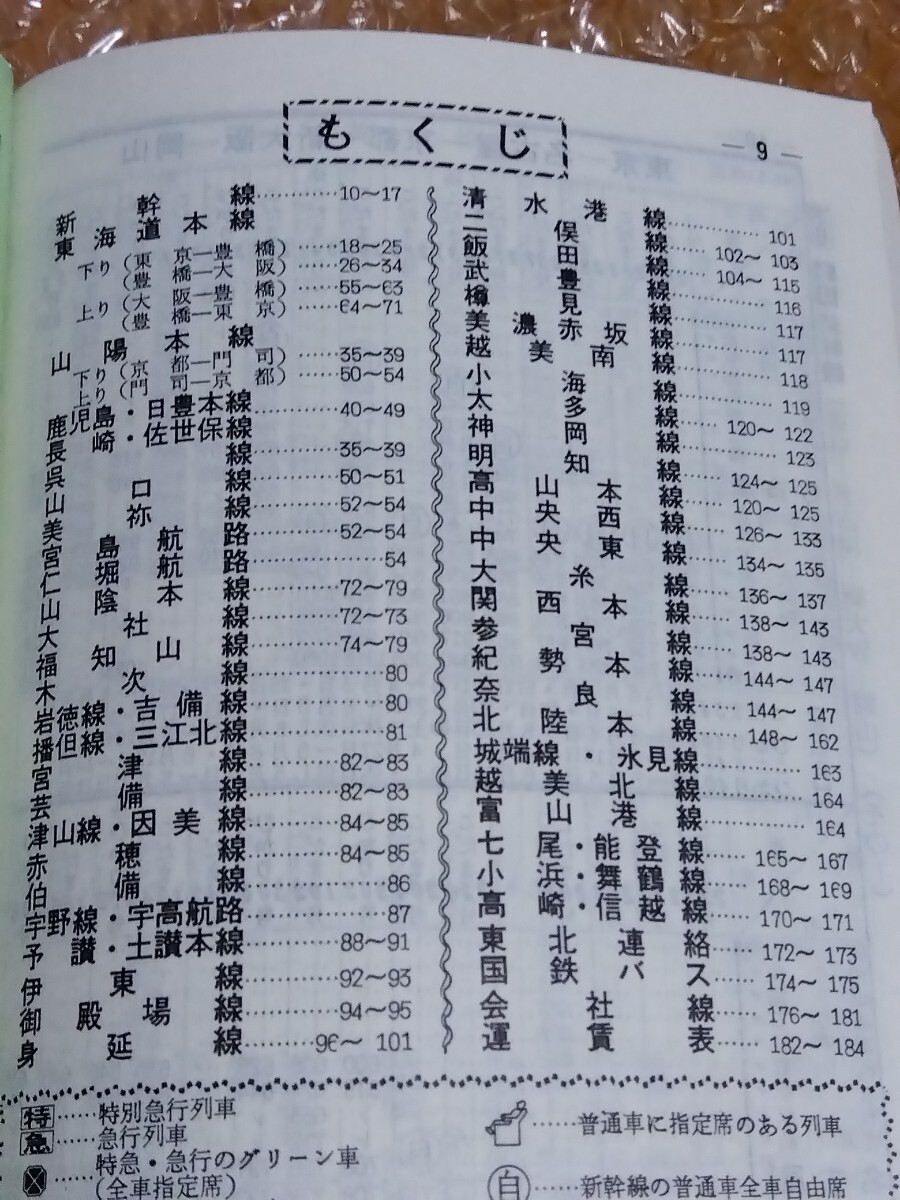 もくじ
— 9 —
新幹線………… 10〜17
東海道本線
下り (東京—豊橋) …… 18〜25
(豊橋—大阪) …… 26〜34
上り (大阪—豊橋) …… 55〜63
(豊橋—東京) …… 64〜71
山陽本線
下り (京都—門司) …… 35〜39
上り (門司—京都) …… 50〜54
鹿児島・日豊本線
長崎・佐世保線 ………… 40〜49
呉線………… 35〜39
山口線………… 50〜51
美祢線………… 52〜54
宮島航路………… 52〜54
仁堀航路………… 54
山陰本線………… 72〜79
大社線………… 72〜73
福知山線………… 74〜79
木次線………… 80
岩徳線・吉備線………… 80
播但線・三江北線………… 81
宮津線………… 82〜83
芸備線………… 82〜83
津山線・因美線………… 84〜85
赤穂線………… 84〜85
伯備線………… 86
宇野線・宇高航路………… 87
予讃・土讃本線………… 88〜91
伊東線………… 92〜93
御殿場線………… 94〜95
身延線………… 96〜101
清水港線………… 101
二俣線…… 102〜103
飯田線…… 104〜115
武豊線………… 116
樽見線………… 117
美濃赤坂線………… 117
越美南線………… 118
小海線………… 119
太多線…… 120〜122
神岡線………… 123
明知線…… 124〜125
高山本線…… 120〜125
中央西線…… 126〜133
中央東線…… 134〜135
大糸線…… 136〜137
関西本線…… 138〜143
参宮線…… 138〜143
紀勢本線…… 144〜147
奈良線…… 144〜147
北陸本線…… 148〜162
城端線・氷見線………… 163
越美北線………… 164
富山港線………… 164
七尾・能登線…… 165〜167
小浜・舞鶴線…… 168〜169
高崎・信越線…… 170〜171
東北連絡…… 172〜173
国鉄バス…… 174〜175
会社線…… 176〜181
運賃表…… 182〜184
特……特別急行列車
急……急行列車
特急・急行のグリーン車
(全車指定席)
……普通車に指定席のある列車
自……新幹線の普通車全車自由席